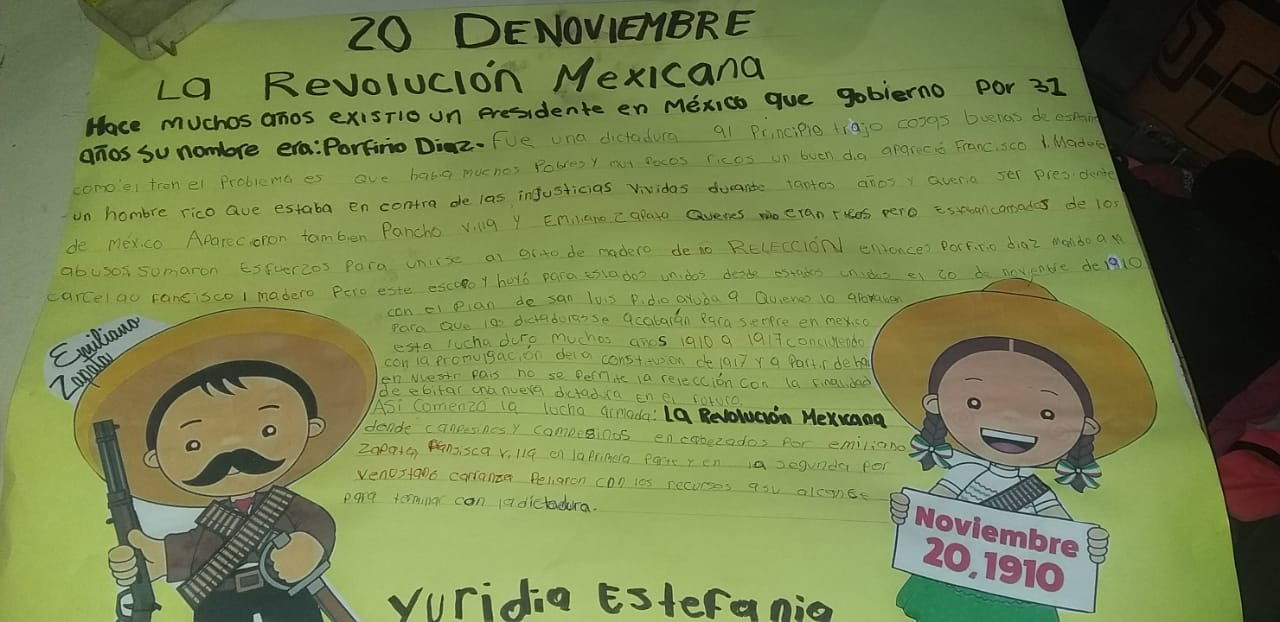 20 DENOVIEMBRE
La Revolución Mexicana
Hace muchos años existio un Presidente en México que gobierno por 31
años su nombre era: Porfirio Diaz. Fue una dictadura al principio trajo cosas buenas de
como el tren el problema es que habia muchos pobres y muy pocos ricos un buen dia apareció Francisco I. Madero
un hombre rico que estaba en contra de las injusticias vividas durante tantos años y queria ser presidente
de méxico Aparecieron tambien Pancho villa y Emiliano Zapata Quienes no eran ricos pero Estaban cansados de los
abusos, sumaron Esfuerzos para unirse al grito de madero de no RELECCIÓN entonces Porfirio diaz mando a
carcel a Francisco I madero Pero este escapo y huyó para Estados unidos desde estados unidos el 20 de noviembre de 1910
con el Plan de san luis Pidio ayuda a Quienes lo apoyaban
Para que las dictaduras se acabarán para sempre en mexico
esta lucha duro muchos años 1910 a 1917 concluyendo
con la promulgación de la constitusion de 1917 y a partir de
en nuestr pais no se permite la relección con la finalidad
de ebitar una nueva dictadura en el futuro.
ASi comenzó la lucha armada: La Revolución Mexicana
donde campesinos y campesinas encabezados por emiliano
Zapata, Fransisca villa en la primera parte y en la segunda por
venostiano carranza Peliaron con los recursos asu alcanse
para terminar con la dictadura.
Emiliano
Zapata
Noviembre
20, 1910
Yuridia Estefania